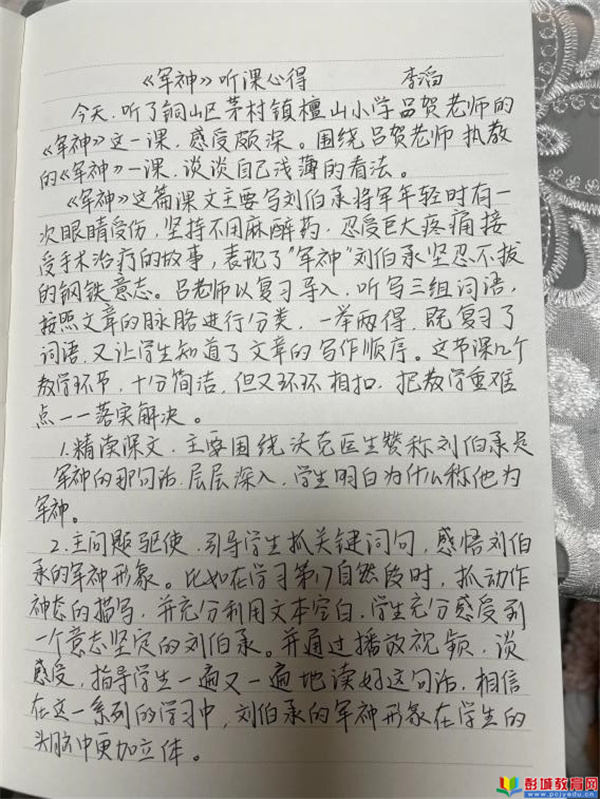 《军神》听课心得 李滔
今天,听了铜山区茅村镇檀山小学吕贺老师的
《军神》这一课,感受颇深。围绕吕贺老师执教
的《军神》一课,谈谈自己浅薄的看法。
《军神》这篇课文主要写刘伯承将军年轻时有一
次眼睛受伤,坚持不用麻醉药,忍受巨大疼痛接
受手术治疗的故事,表现了"军神"刘伯承坚忍不拔
的钢铁意志。吕老师以复习导入,听写三组词语,
按照文章的脉胳进行分类,一举两得,既复习了
词语,又让学生知道了文章的写作顺序。这节课几个
教学环节,十分简洁,但又环环相扣,把教学重难
点一一落实解决。
1.精读课文,主要围绕沃克医生赞称刘伯承是
军神的那句话,层层深入,学生明白为什么称他为
军神。
2.主问题驱使,引导学生抓关键词句,感悟刘伯
承的军神形象。比如在学习第17自然段时,抓动作
神态的描写,并充分利用文本空白,学生充分感受到
一个意志坚定的刘伯承。并通过播放视频,谈
感受,指导学生一遍又一遍地读好这句话,相信
在这一系列的学习中,刘伯承的军神形象在学生的
头脑中更加立体。
彭城教育网
www.pcjyedu.cn